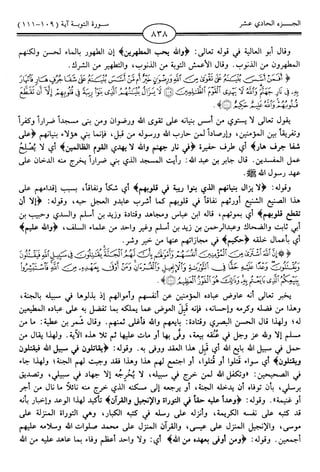 الجزء الحادي عشر
سورة التوبة آية (١٠٩-١١١)
٨٣٨
وقال أبو العالية في قوله تعالى: ﴿والله يحب المطهرين﴾ إن الطهور بالماء لحسن ولكنهم
المطهرون من الذنوب. وقال الأعمش التوبة من الذنوب، والتطهير من الشرك.
يقول تعالى لا يستوي من أسس بنيانه على تقوى الله ورضوان ومن بنى مسجداً ضراراً وكفراً
وتفريقاً بين المؤمنين، وإرصاداً لمن حارب الله ورسوله من قبل، فإنما بني هؤلاء بنيانهم ﴿على
شفا جرف هار﴾ أي طرف حفيرة ﴿في نار جهنم والله لا يهدي القوم الظالمين﴾ أي لا يصلح
عمل المفسدين. قال جابر بن عبد الله: رأيت المسجد الذي بني ضراراً يخرج منه الدخان على
عهد رسول الله ﷺ.
وقوله: ﴿لا يزال بنيانهم الذي بنوا ريبة في قلوبهم﴾ أي شكاً ونفاقاً، بسبب إقدامهم على
هذا الصنيع الشنيع أورثهم نفاقاً في قلوبهم كما أشرب عابدو العجل حبه، وقوله: ﴿إلا أن
تقطع قلوبهم﴾ أي بموتهم، قاله ابن عباس ومجاهد وقتادة وزيد بن أسلم والسدي وحبيب بن
أبي ثابت والضحاك وعبدالرحمن بن زيد بن أسلم وغير واحد من علماء السلف، ﴿والله عليم﴾
أي بأعمال خلقه ﴿حكيم﴾ في مجازاتهم عنها من خير وشر.
يخبر تعالى أنه عاوض عباده المؤمنين عن أنفسهم وأموالهم إذ بذلوها في سبيله بالجنة،
وهذا من فضله وكرمه وإحسانه، فإنه قبل العوض عما يملكه بما تفضل به على عباده المطيعين
له؛ ولهذا قال الحسن البصري وقتادة: بايعهم والله فأغلى ثمنهم. وقال شمر بن عطية: ما من
مسلم إلا ولله عز وجل في عنقه بيعة، وفّى بها أو مات عليها ثم تلا هذه الآية. ولهذا يقال من
حمل في سبيل الله بايع الله أي قبل هذا العقد ووفى به. وقوله: ﴿يقاتلون في سبيل الله فيقتلون
ويقتلون﴾ أي سواء قتلوا أو قتلوا، أو اجتمع لهم هذا وهذا فقد وجبت لهم الجنة؛ ولهذا جاء
في الصحيحين: «وتكفل الله لمن خرج في سبيله، لا يخرجه إلا جهاد في سبيلي، وتصديق
برسلي، بأن توفاه أن يدخله الجنة، أو يرجعه إلى مسكنه الذي خرج منه نائلاً ما نال من أجر
أو غنيمة». وقوله: ﴿وعداً عليه حقاً في التوراة والإنجيل والقرآن﴾ تأكيد لهذا الوعد وإخبار بأنه
قد كتبه على نفسه الكريمة، وأنزله على رسله في كتبه الكبار، وهي التوراة المنزلة على
موسى، والإنجيل المنزل على عيسى، والقرآن المنزل على محمد صلوات الله وسلامه عليهم
أجمعين. وقوله: ﴿ومن أوفى بعهده من الله﴾ أي: ولا واحد أعظم وفاء بما عاهد عليه من الله